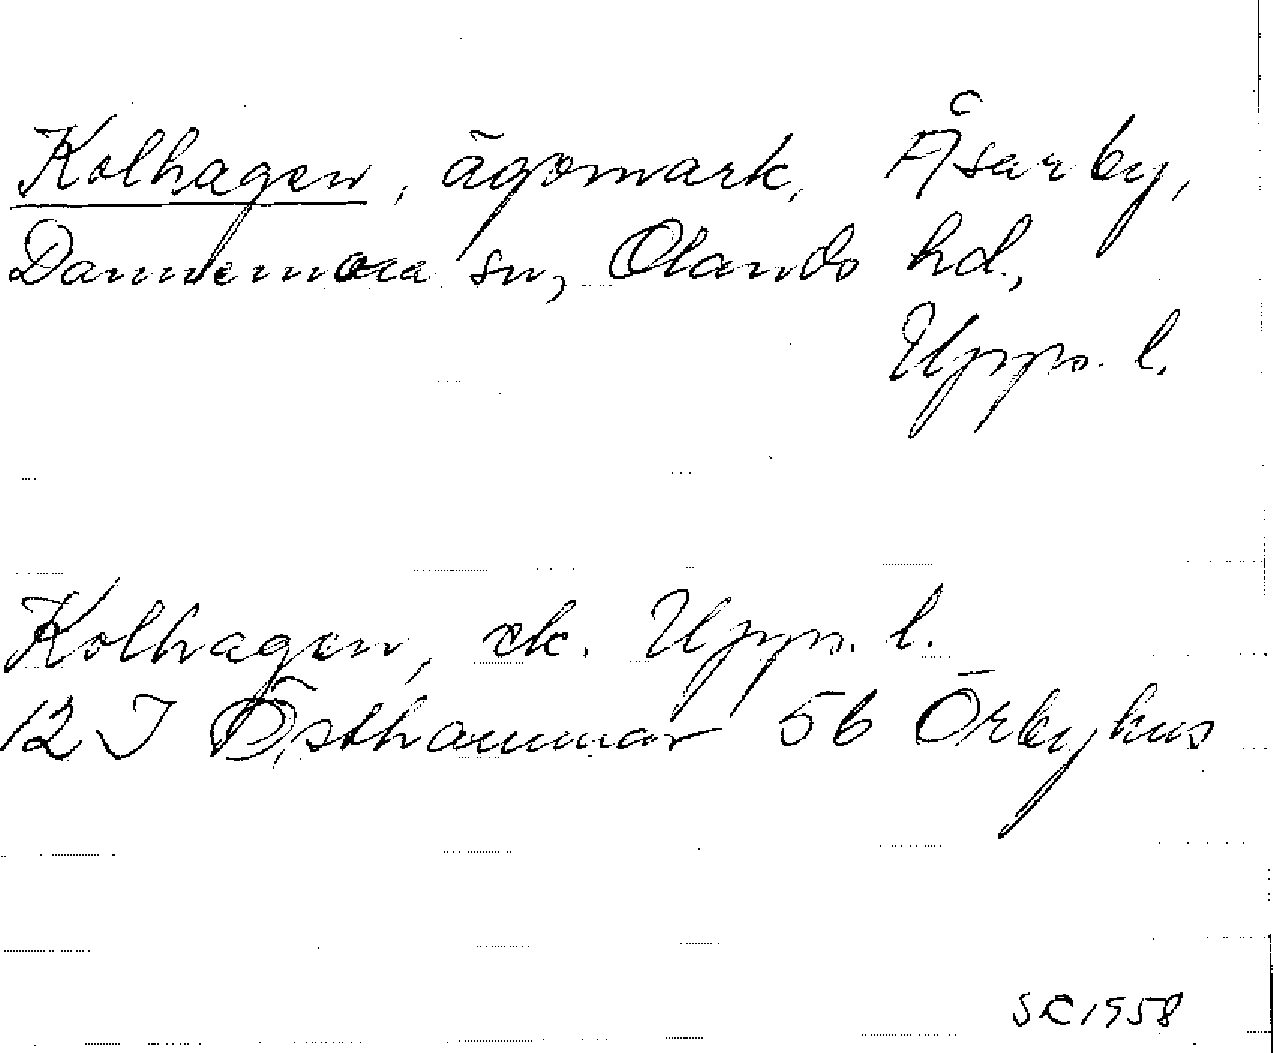 Kolhagen, ägomark, Åsarby,
Dannemora sn, Olands hd.,
Upps. l.
Kolhagen, ek. Upps. l.
12 I Östhammar 5b Örbyhus
SC 1958